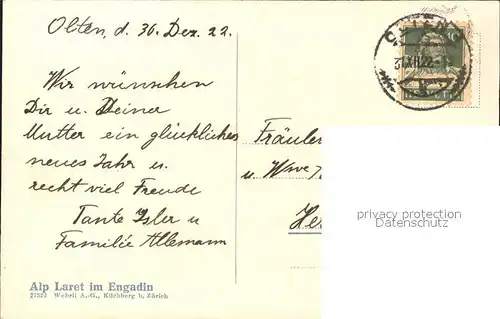 Olten, d. 30. Dez. 22.
Wir wünschen
Dir u. Deiner
Mutter ein glückliches
neues Jahr u.
recht viel Freude
Tante Isler u
Familie Allemann
Alp Laret im Engadin
27329 Wehrli A.-G., Kilchberg b, Zürich
OLTEN
10
31.XII.22
HELVETIA
Fräulei
u. Wwe
He
privacy protection
Datenschutz